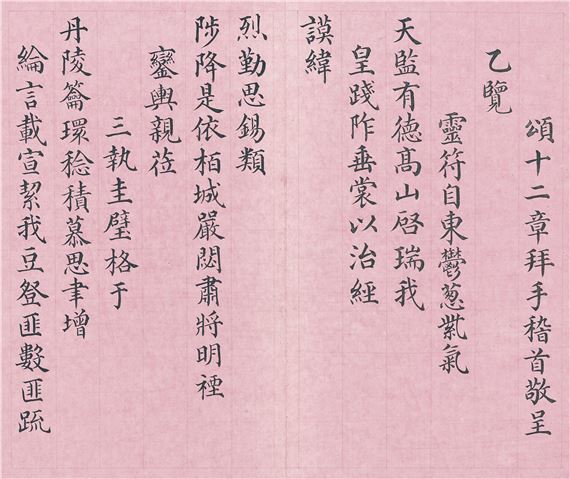 頌十二章拜手稽首敬呈
乙覽
靈符自東鬱葱紫氣
天監有德髙山啓瑞我
皇踐阼垂裳以治經
謨緯
烈勤思錫類
陟降是依栢城嚴閟肅將明禋
鑾輿親莅
三執圭璧格于
丹陵籥環稔積慕思聿增
綸言載宣絜我豆登匪數匪疏